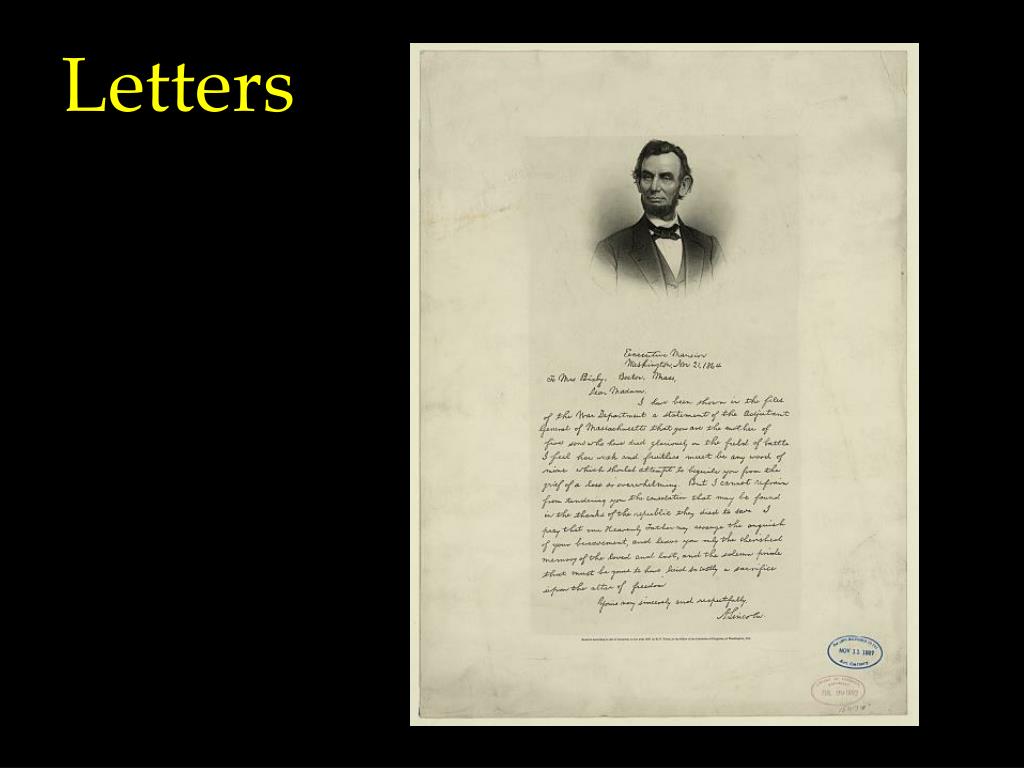 Letters
Executive Mansion
Washington, Nov 21, 1864
To Mrs Bixby, Boston, Mass,
Dear Madam,
I have been shown in the files
of the War Department a statement of the Adjutant
General of Massachusetts that you are the mother of
five sons who have died gloriously on the field of battle
I feel how weak and fruitless must be any word of
mine which should attempt to beguile you from the
grief of a loss so overwhelming. But I cannot refrain
from tendering you the consolation that may be found
in the thanks of the republic they died to save I
pray that our Heavenly Father may assuage the anguish
of your bereavement, and leave you only the cherished
memory of the loved and lost, and the solemn pride
that must be yours to have laid so costly a sacrifice
upon the altar of freedom
Yours very sincerely and respectfully,
A. Lincoln
NOV 11 1887
Art Gallery